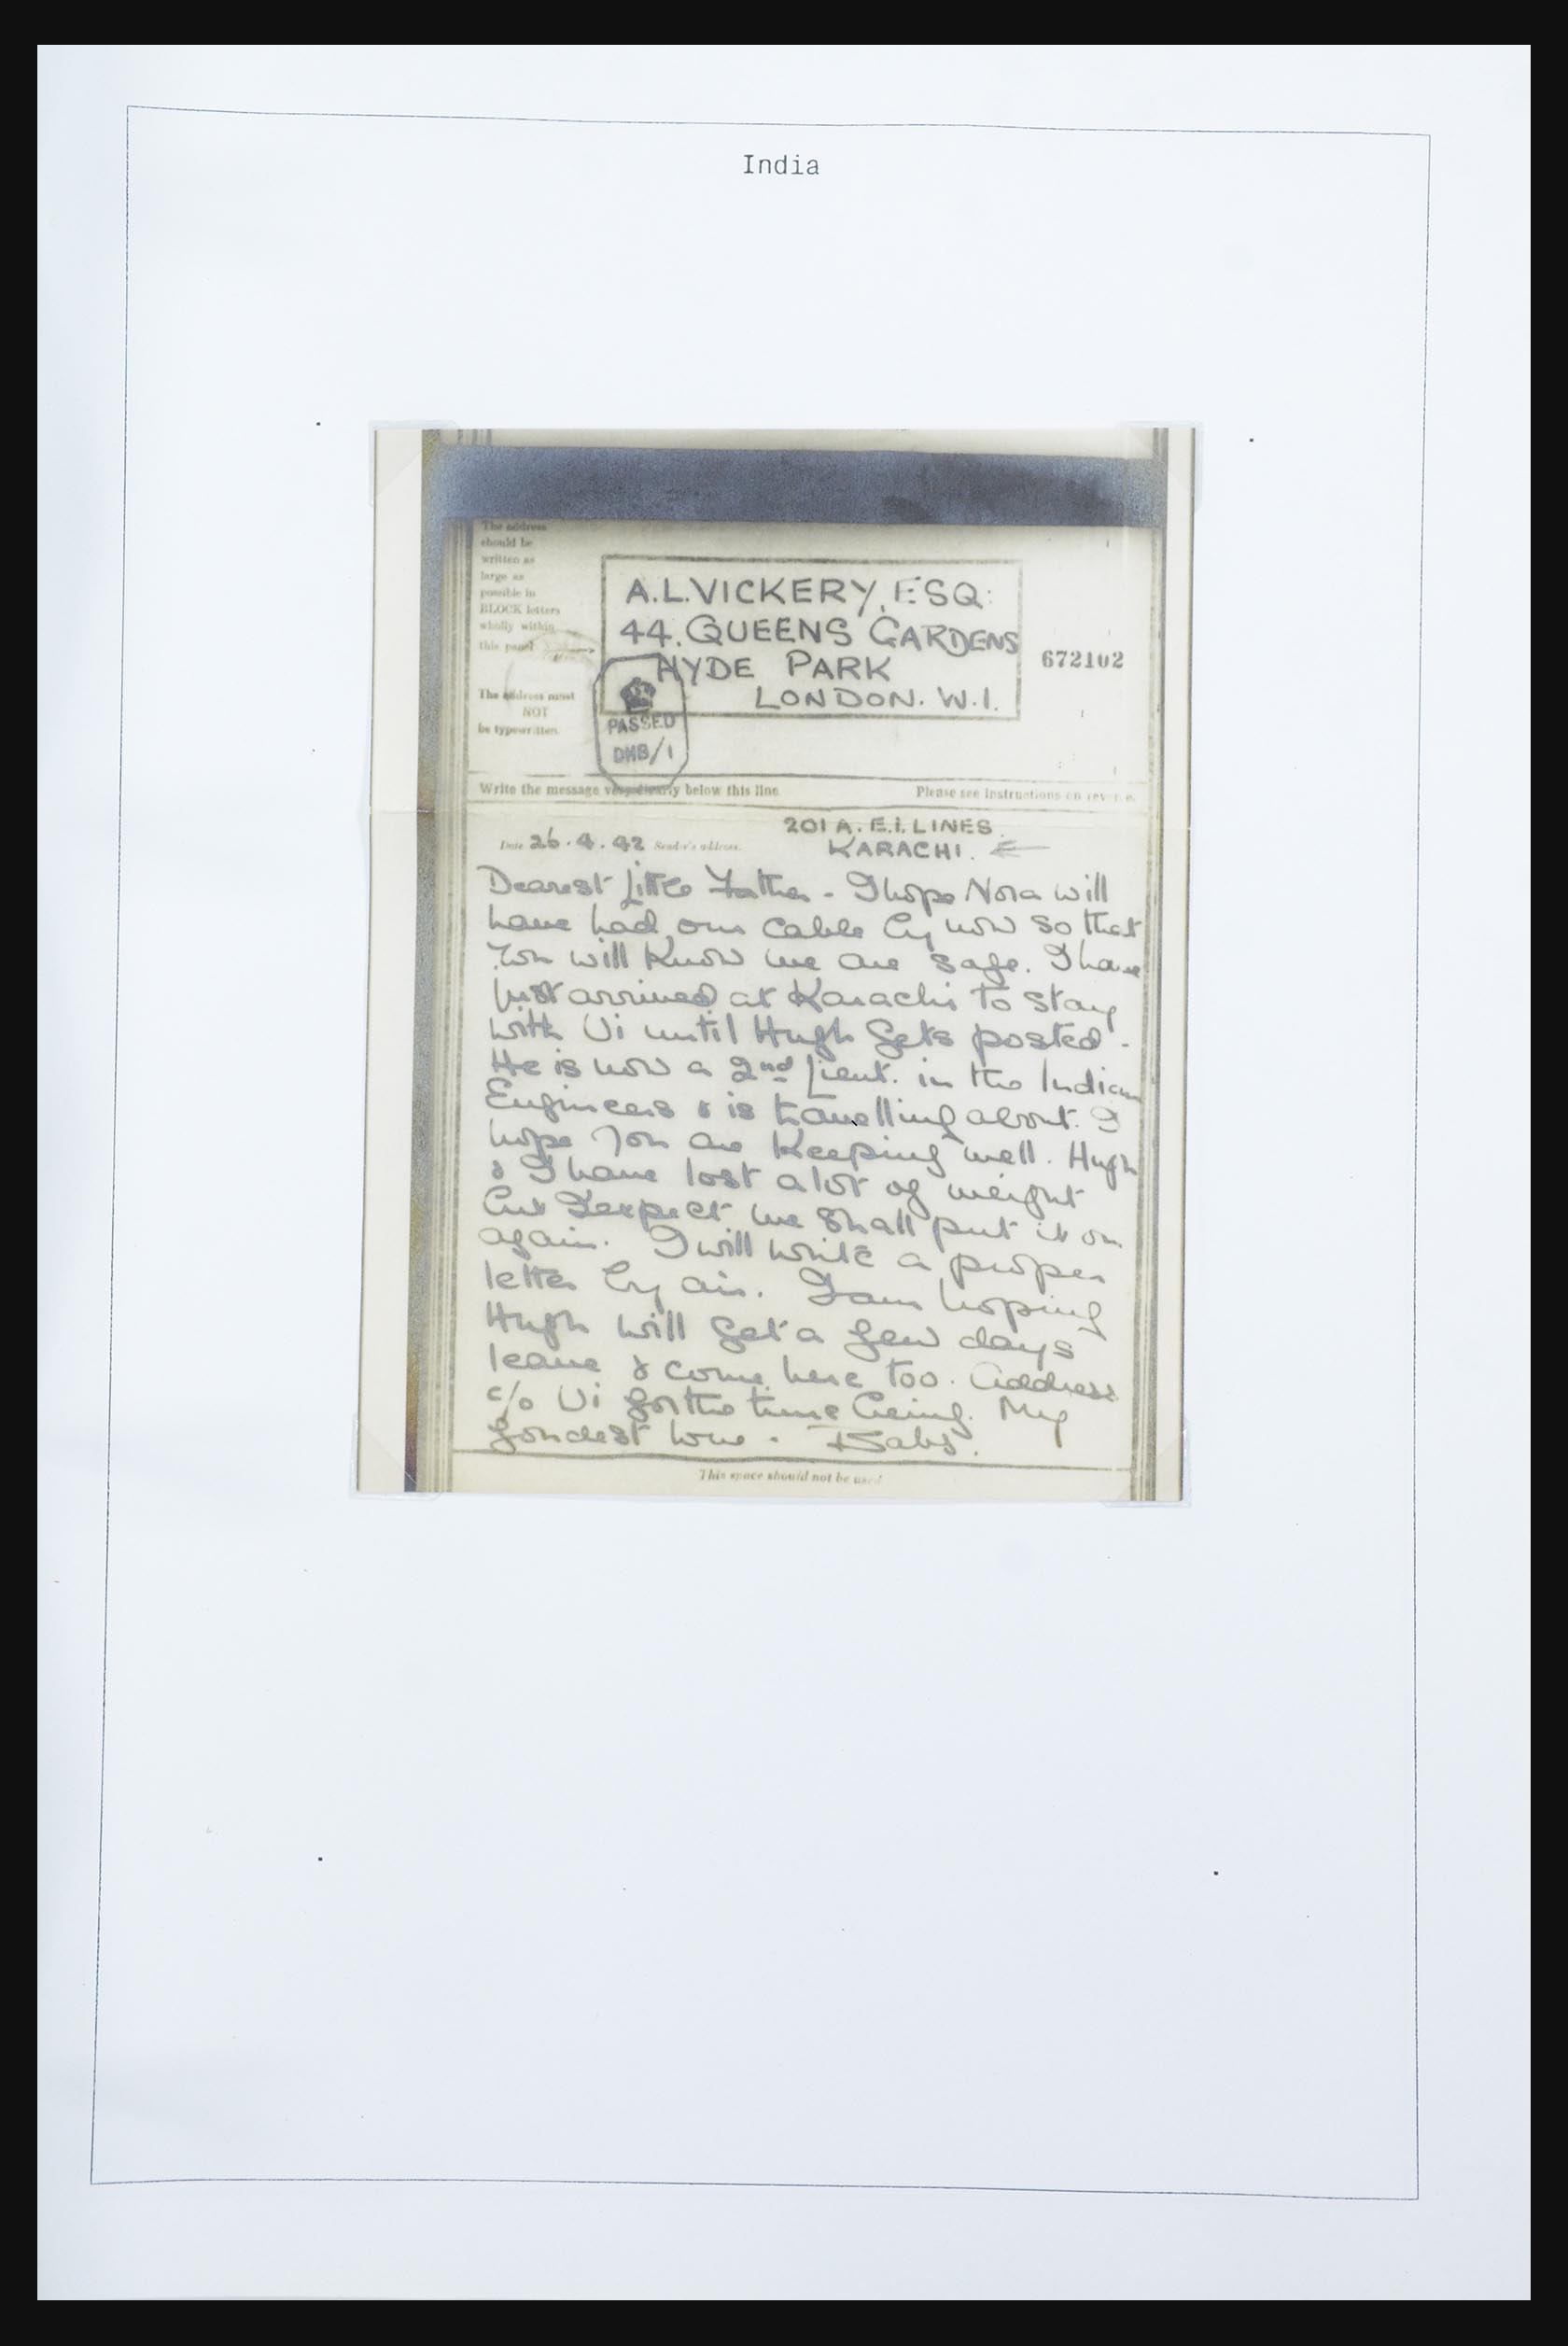 India
The address
should be
written as
large as
possible in
BLOCK letters
wholly within
this panel
The address must
NOT
be typewritten.
A.L.VICKERY, ESQ:
44. QUEENS GARDENS
HYDE PARK
LONDON. W.1.
672102
PASSED
DHB/1
Write the message very clearly below this line
Please see instructions on reverse.
201 A. E.I. LINES.
Date 26.4.42 Sender's address.
KARACHI.
Dearest Little Father - I hope Nora will
have had our cable by now so that
you will know we are safe. I have
just arrived at Karachi to stay
with Vi until Hugh gets posted -
He is now a 2nd Lieut. in the Indian
Engineers & is travelling about. I
hope you are keeping well. Hugh
& I have lost a lot of weight
but I expect we shall put it on
again. I will write a proper
letter by air. I am hoping
Hugh will get a few days
leave & come here too. Address
c/o Vi for the time being. My
fondest love - Babs.
This space should not be used